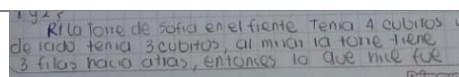 1 y 2 ?
R/ La Torre de sofia en el frente Tenia 4 cubitos y
de lado tenia 3 cubitos, al mirar la torre tiene
3 filas hacia atras, entonces lo que hice fue